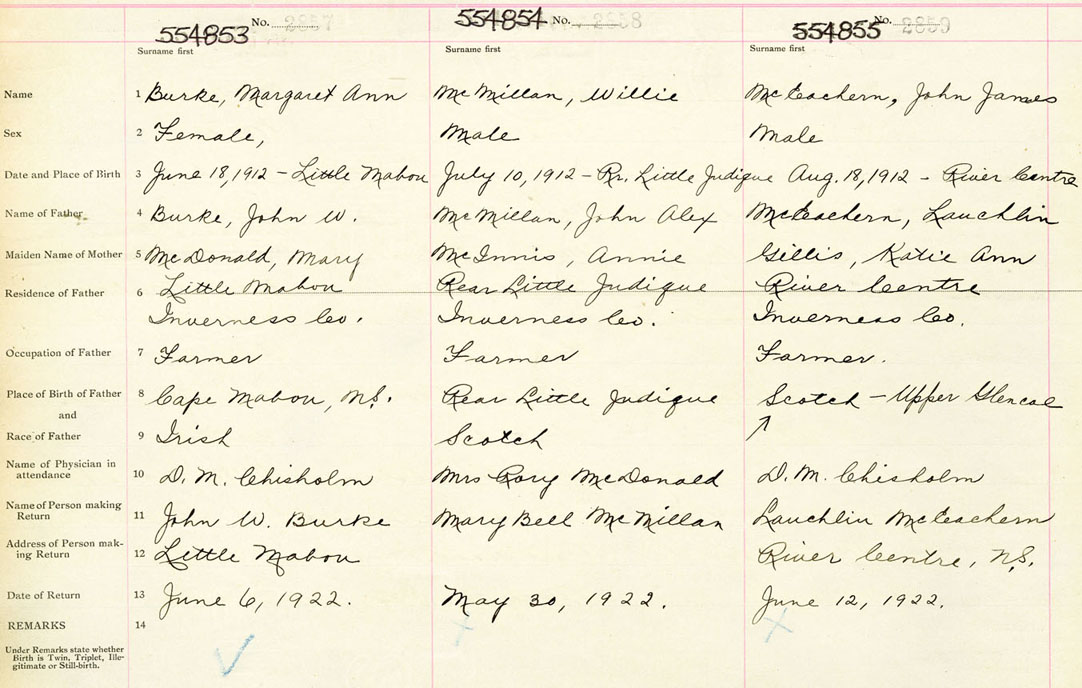 554853 No. 2857 554854 No. 2858 554855 No. 2859
Surname first Surname first Surname first
Name 1 Burke, Margaret Ann McMillan, Willie McEachern, John James
Sex 2 Female, Male Male
Date and Place of Birth 3 June 18, 1912 - Little Mabou July 10, 1912 - Rr. Little Judique Aug. 18, 1912 - River Centre
Name of Father 4 Burke, John W. McMillan, John Alex McEachern, Lauchlin
Maiden Name of Mother 5 McDonald, Mary McInnis, Annie Gillis, Katie Ann
Residence of Father 6 Little Mabou Rear Little Judique River Centre
Inverness Co. Inverness Co. Inverness Co.
Occupation of Father 7 Farmer Farmer Farmer.
Place of Birth of Father 8 Cape Mabou, N.S. Rear Little Judique Scotch - Upper Glencoe
and
Race of Father 9 Irish Scotch
Name of Physician in
attendance 10 D. M. Chisholm Mrs Rory McDonald D. M. Chisholm
Name of Person making
Return 11 John W. Burke Mary Bell McMillan Lauchlin McEachern
Address of Person mak-
ing Return 12 Little Mabou River Centre, N.S.
Date of Return 13 June 6, 1922. May 30, 1922. June 12, 1922.
REMARKS 14
Under Remarks state whether
Birth is Twin, Triplet, Ille-
gitimate or Still-birth.